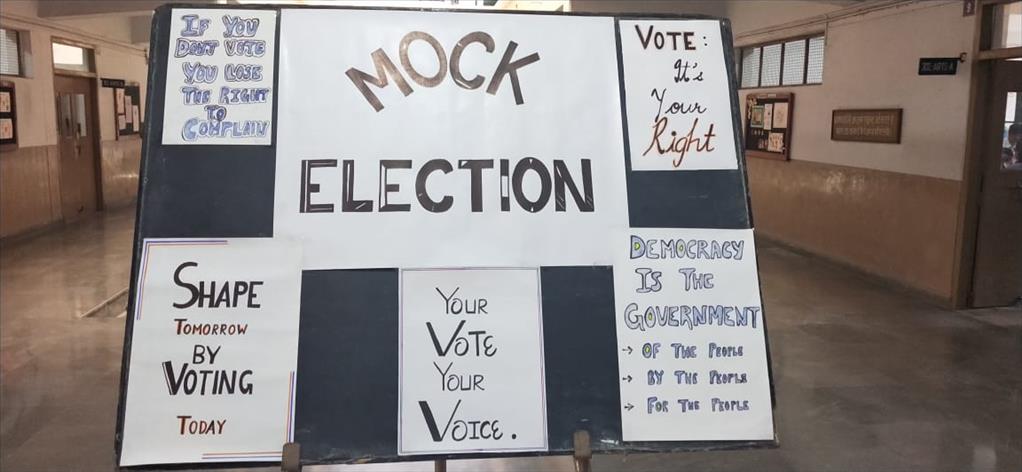 IF YOU
DONT VOTE
YOU LOSE
THE RIGHT
TO
COMPLAIN
MOCK
ELECTION
VOTE:
It's
Your
Right
SHAPE
TOMORROW
BY
VOTING
TODAY
YOUR
VOTE
YOUR
VOICE.
DEMOCRACY
IS THE
GOVERNMENT
→ OF THE PEOPLE
→ BY THE PEOPLE
→ FOR THE PEOPLE